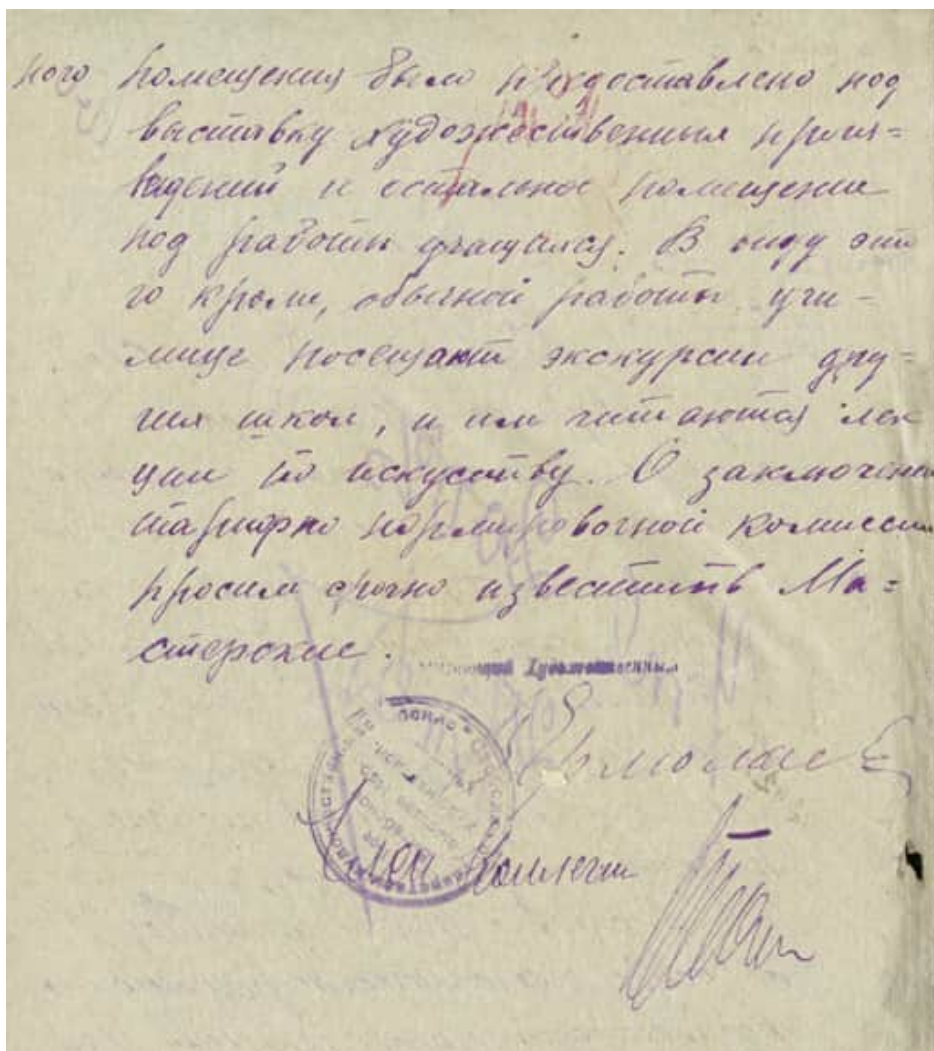 ного помещения было предоставлено под
выставку художественных произ=
ведений и остальное помещение
под работы учащихся. В виду это
го кроме, обычной работы учи-
лище посещают экскурсии дру=
гих школ, и им читаются лек
ции по искусству. О заключении
тарифно нормировочной комиссии
просим срочно известить Ма=
стерские.
Художественным
Ермолаева
Член Коллегии